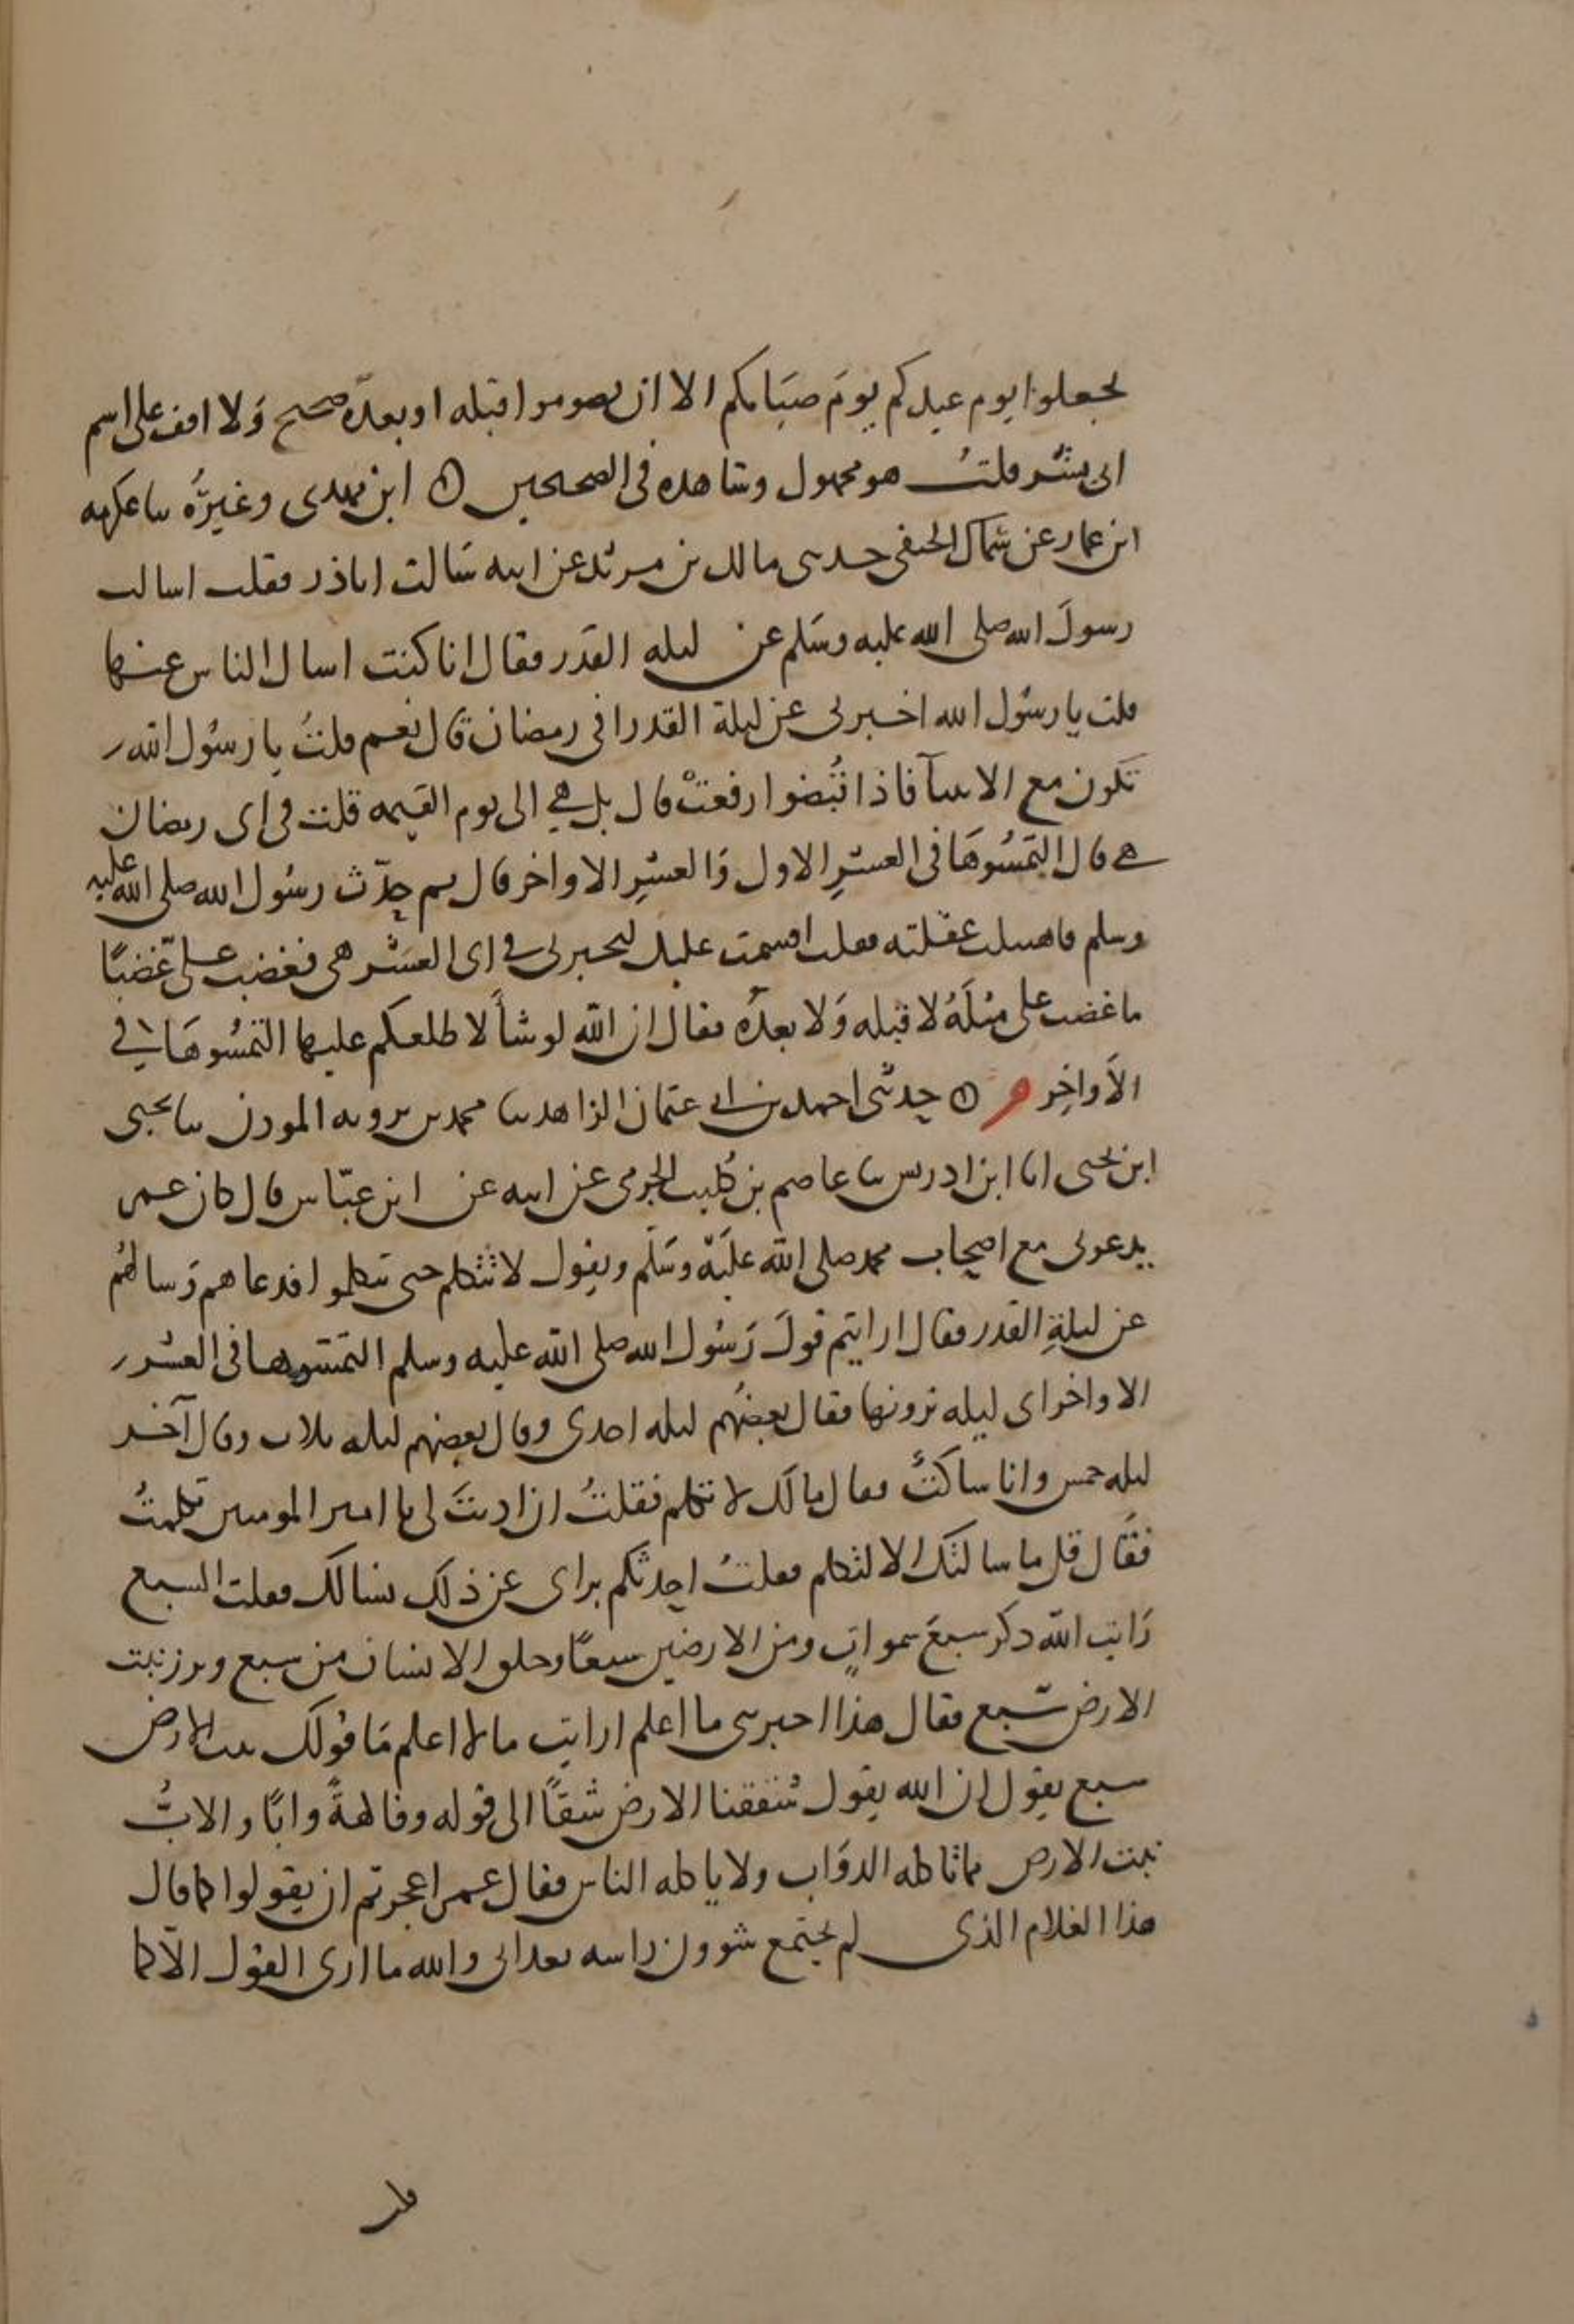 تجعلوا يوم عيدكم يومَ صيَامكم الا ان تصوموا قبله او بعدَه صحيح وَلا اقف على اسم
ابى بشر قلتُ هو مجهول وشاهده فى الصحيحين ⊙ ابن مهدى وغيرُه ثنا عكرمه
ابن عمار عن سماك الحنفى حدثنى مالك بن مرثد عن ابيه سَالت اباذر فقلت اسالت
رسولَ الله صلى الله عليه وسَلم عن ليله القدَر فقال انا كنت اسال الناس عنها
قلت يا رسُول الله اخبرنى عن ليلة القدر افى رمضان قال نعم قلتُ يا رسُول الله
تكون مع الانبيآ فاذا قُبضوا رفعتْ قال بل هي الى يوم القيمه قلت فى اى رمضان
هي قال التمسُوهَا فى العشرِ الاول وَالعشرِ الاواخر قال ثم حدّث رسُول الله صلى الله عليه
وسلم فاهتبلت غفلته فقلت اقسمت عليك لتخبرنى فى اى العَشر هى فغضب علىّ غضبًا
ما غضب على مثلَهُ لا قبله وَلا بعدَه فقال ان الله لو شآ لاطلعكم عليها التمسُوهَا فى
الاَواخِر م ⊙ حدثنى احمد بن ابى عثمان الزاهد ثنا محمد بن برويه الموذن ثنا يحيى
ابن يحيى انا ابن ادريس ثنا عاصم بن كُليب الجرمى عن ابيه عن ابن عبّاس قال كان عمر
يدعونى مع اصحاب محمد صلى الله علَيه وسَلم ويقول لا تتكلم حتى يتكلموا فدعاهم وَسالهُم
عن ليلةِ القدر فقال ارايتم قولَ رَسُول الله صلى الله عليه وسلم التمسوها فى العشر
الاواخر اى ليله ترونها فقال بعضهُم ليله احدى وقال بعضهم ليله ثلاث وقال آخر
ليله خمس وانا ساكتٌ فقال مالَك لا تتكلم فقلتُ ان اذنتَ لى يا امير المومنين تكلمتُ
فقَال قل ما سالتك الا لتتكلم فقلتُ احدثكم براى عن ذلك نسالك فقلت السبع
رَايت الله ذكر سبعَ سمواتٍ ومن الارضين سبعًا وخلق الانسان من سبع وبرز نبت
الارض سبع فقال هذا اخبرتنى ما اعلم ارايت ما لا اعلم مَا قولك نبت الارض
سبع يقول ان الله يقول شققنا الارض شقًا الى قوله وفاكهةً وابًا والابُّ
نبت الارض مما تاكله الدوَاب ولا ياكله الناس فقال عمر اعجزتم ان يقولوا كما قال
هذا الغلام الذى لم يجتمع شوون راسه بعد انى والله ما ارى القول الاّ كما